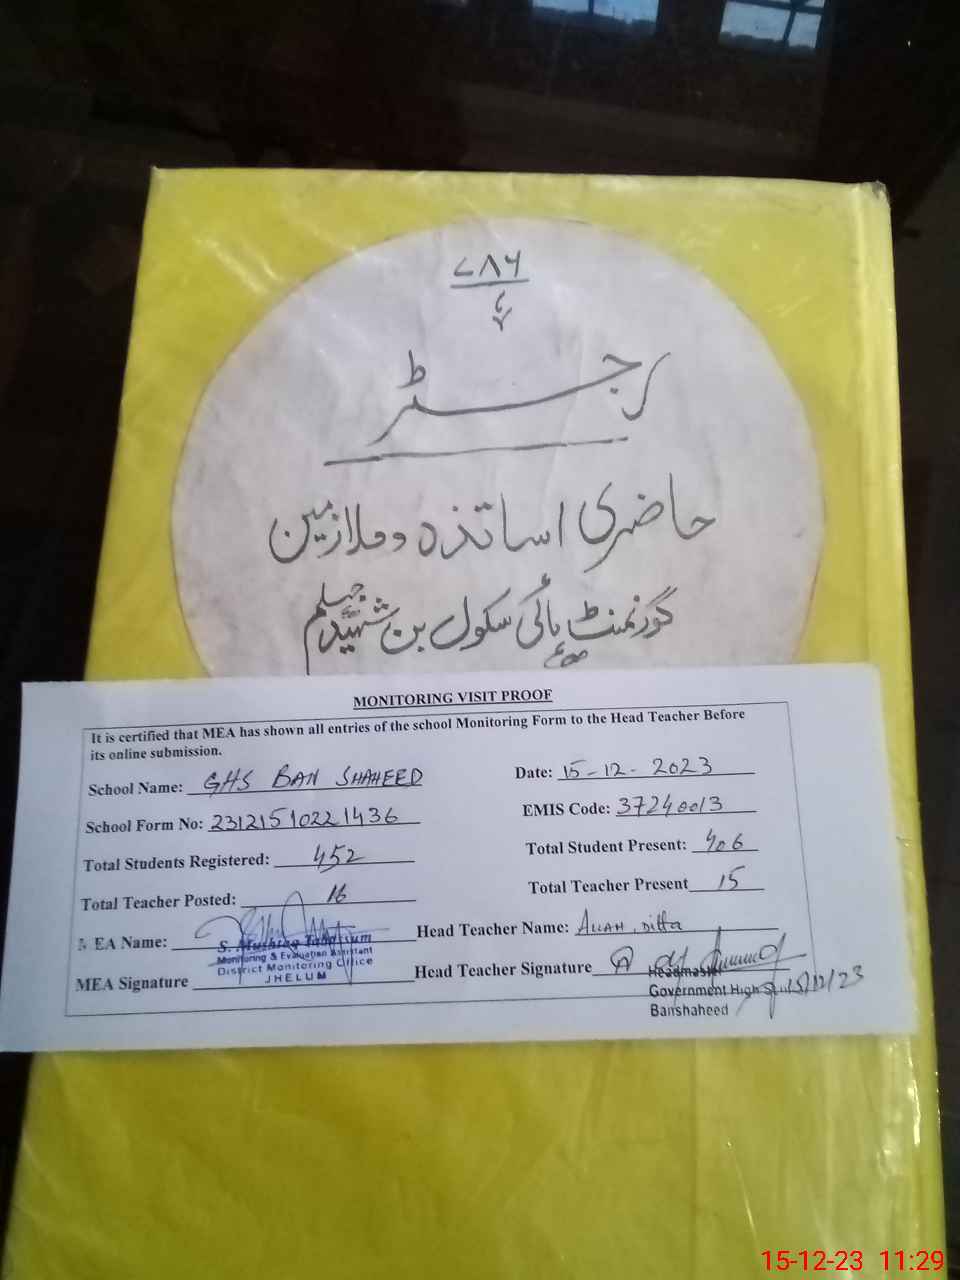 ۷۸۶
رجسٹر
حاضری اساتذہ و ملازمین
گورنمنٹ ہائی سکول بن شہید جہلم
MONITORING VISIT PROOF
It is certified that MEA has shown all entries of the school Monitoring Form to the Head Teacher Before
its online submission.
School Name: GHS BAN SHAHEED Date: 15-12-2023
School Form No: 23121510221436 EMIS Code: 37240013
Total Students Registered: 452 Total Student Present: 406
Total Teacher Posted: 16 Total Teacher Present 15
EA Name: Head Teacher Name: ALLAH Ditta
S. Mushtaq
Monitoring & Evaluation Assistant
District Monitoring Office
JHELUM
MEA Signature Head Teacher Signature
Headmaster
Government High 15/12/23
Banshaheed
15-12-23 11:29